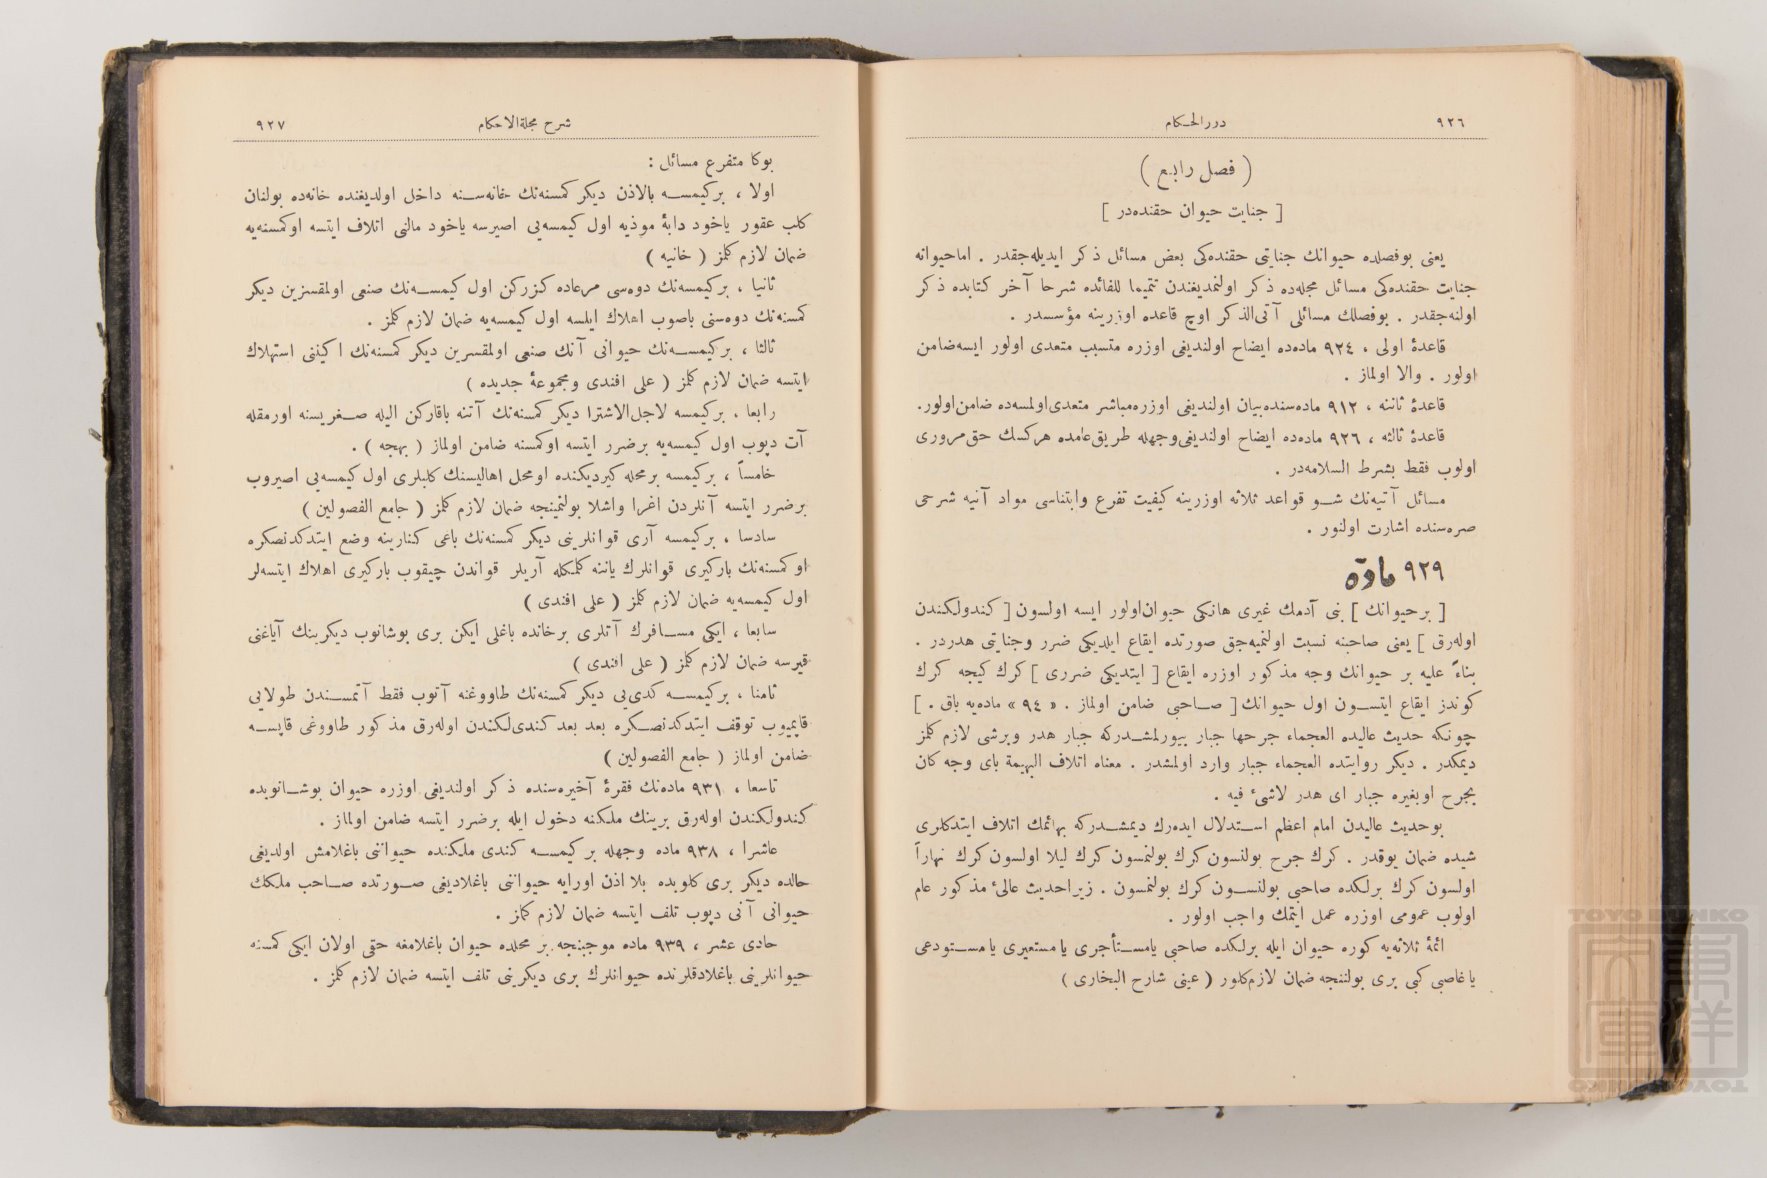 ٩٢٦
دررالحكام
( فصل رابع )
[ جنايت حيوان حقنده‌در ]
يعنى بوفصلده حيوانك جنايتى حقنده‌كى بعض مسائل ذكر ايديله‌جقدر . اما‌حيوانه
جنايت حقنده‌كى مسائل مجله‌ده ذكر اولنمديغندن تتميما للفائده شرحا آخر كتابده ذكر
اولنه‌جقدر . بوفصلك مسائلى آتى‌الذكر اوچ قاعده اوزرينه مؤسسدر .
قاعدۀ اولى ، ٩٢٤ ماده‌ده ايضاح اولنديغى اوزره متسبب متعدى اولور ايسه ضامن
اولور . والا اولماز .
قاعدۀ ثانيه ، ٩١٢ ماده‌سنده بيان اولنديغى اوزره مباشر متعدى اولمسه‌ده ضامن اولور.
قاعدۀ ثالثه ، ٩٢٦ ماده‌ده ايضاح اولنديغى وجهله طريق عامده هركسك حق مرورى
اولوب فقط بشرط السلامه‌در .
مسائل آتيه‌نك شو قواعد ثلاثه اوزرينه كيفيت تفرع وابتناسى مواد آتيه شرحى
صره‌سنده اشارت اولنور .
٩٢٩ ماده
[ برحيوانك ] بنى آدمك غيرى هانكى حيوان اولور ايسه اولسون [ كندولكندن
اوله‌رق ] يعنى صاحبنه نسبت اولنميه‌جق صورتده ايقاع ايلديكى ضرر وجنايتى هدردر .
بناءً عليه بر حيوانك وجه مذكور اوزره ايقاع [ ايتديكى ضررى ] كرك كيجه كرك
كوندز ايقاع ايتسون اول حيوانك [ صاحبى ضامن اولماز . « ٩٤ » ماده‌يه باق . ]
چونكه حديث عاليده العجماء جرحها جبار بيورلمشدركه جبار هدر وبرشى لازم كلمز
ديمكدر . ديكر روايتده العجماء جبار وارد اولمشدر . معناه اتلاف البهيمة باى وجه كان
بجرح اوبغيره جبار اى هدر لاشىٔ فيه .
بوحديث عاليدن امام اعظم استدلال ايده‌رك ديمشدركه بهائمك اتلاف ايتدكلرى
شيده ضمان يوقدر . كرك جرح بولنسون كرك بولنمسون كرك ليلا اولسون كرك نهاراً
اولسون كرك برلكده صاحبى بولنسون كرك بولنمسون . زيرا حديث عالىٔ مذكور عام
اولوب عمومى اوزره عمل ايتمك واجب اولور .
ائمۀ ثلاثه‌يه كوره حيوان ايله برلكده صاحبى يامستأجرى يامستعيرى يامستودعى
ياغاصبى كبى برى بولننجه ضمان لازم كلور ( عينى شارح البخارى )
شرح مجلةالاحكام
٩٢٧
بوكا متفرع مسائل :
اولا ، بركيمسه بالاذن ديكر كمسنه‌نك خانه‌سنه داخل اولديغنده خانه‌ده بولنان
كلب عقور ياخود دابۀ موذيه اول كيمسه‌يى اصيرسه ياخود مالنى اتلاف ايتسه اوكمسنه‌يه
ضمان لازم كلمز ( خانيه )
ثانيا ، بركيمسه‌نك دوه‌سى مرعاده كزركن اول كيمسه‌نك صنعى اولمقسزين ديكر
كمسنه‌نك دوه‌سنى باصوب اهلاك ايلسه اول كيمسه‌يه ضمان لازم كلمز .
ثالثا ، بركيمسه‌نك حيوانى آنك صنعى اولمقسزين ديكر كمسنه‌نك اكيننى استهلاك
ايتسه ضمان لازم كلمز ( على افندى ومجموعۀ جديده )
رابعا ، بركيمسه لاجل‌الاشترا ديكر كمسنه‌نك آتنه باقاركن اليله صغريسنه اورمقله
آت دپوب اول كيمسه‌يه برضرر ايتسه اوكمسنه ضامن اولماز ( بهجه ) .
خامساً ، بركيمسه بر محله كيرديكنده اومحل اهاليسنك كلبلرى اول كيمسه‌يى اصيروب
برضرر ايتسه آنلردن اغرا واشلا بولنمينجه ضمان لازم كلمز ( جامع الفصولين )
سادسا ، بركيمسه آرى قوانلرينى ديكر كمسنه‌نك باغى كنارينه وضع ايتدكدنصكره
اوكمسنه‌نك باركيرى قوانلرك ياننه كلمكله آريلر قواندن چيقوب باركيرى اهلاك ايتسه‌لر
اول كيمسه‌يه ضمان لازم كلمز ( على افندى )
سابعا ، ايكى مسافرك آتلرى برخانده باغلى ايكن برى بوشانوب ديكرينك آياغنى
قيرسه ضمان لازم كلمز ( على افندى )
ثامنا ، بركيمسه كدى‌يى ديكر كمسنه‌نك طاووغنه آتوب فقط آتمسندن طولايى
قاپميوب توقف ايتدكدنصكره بعد بعد كندى‌لكندن اوله‌رق مذكور طاووغى قاپسه
ضامن اولماز ( جامع الفصولين )
تاسعا ، ٩٣١ ماده‌نك فقرۀ آخيره‌سنده ذكر اولنديغى اوزره حيوان بوشانوبده
كندولكندن اوله‌رق برينك ملكنه دخول ايله برضرر ايتسه ضامن اولماز .
عاشرا ، ٩٣٨ ماده وجهله بركيمسه كندى ملكنده حيواننى باغلامش اولديغى
حالده ديكر برى كلوبده بلا اذن اورايه حيواننى باغلاديغى صورتده صاحب ملكك
حيوانى آنى دپوب تلف ايتسه ضمان لازم كلمز .
حادى عشر ، ٩٣٩ ماده موجبنجه بر محلده حيوان باغلامغه حقى اولان ايكى كمسنه
حيوانلرينى باغلادقلرنده حيوانلرك برى ديكرينى تلف ايتسه ضمان لازم كلمز .
TOYO BUNKO